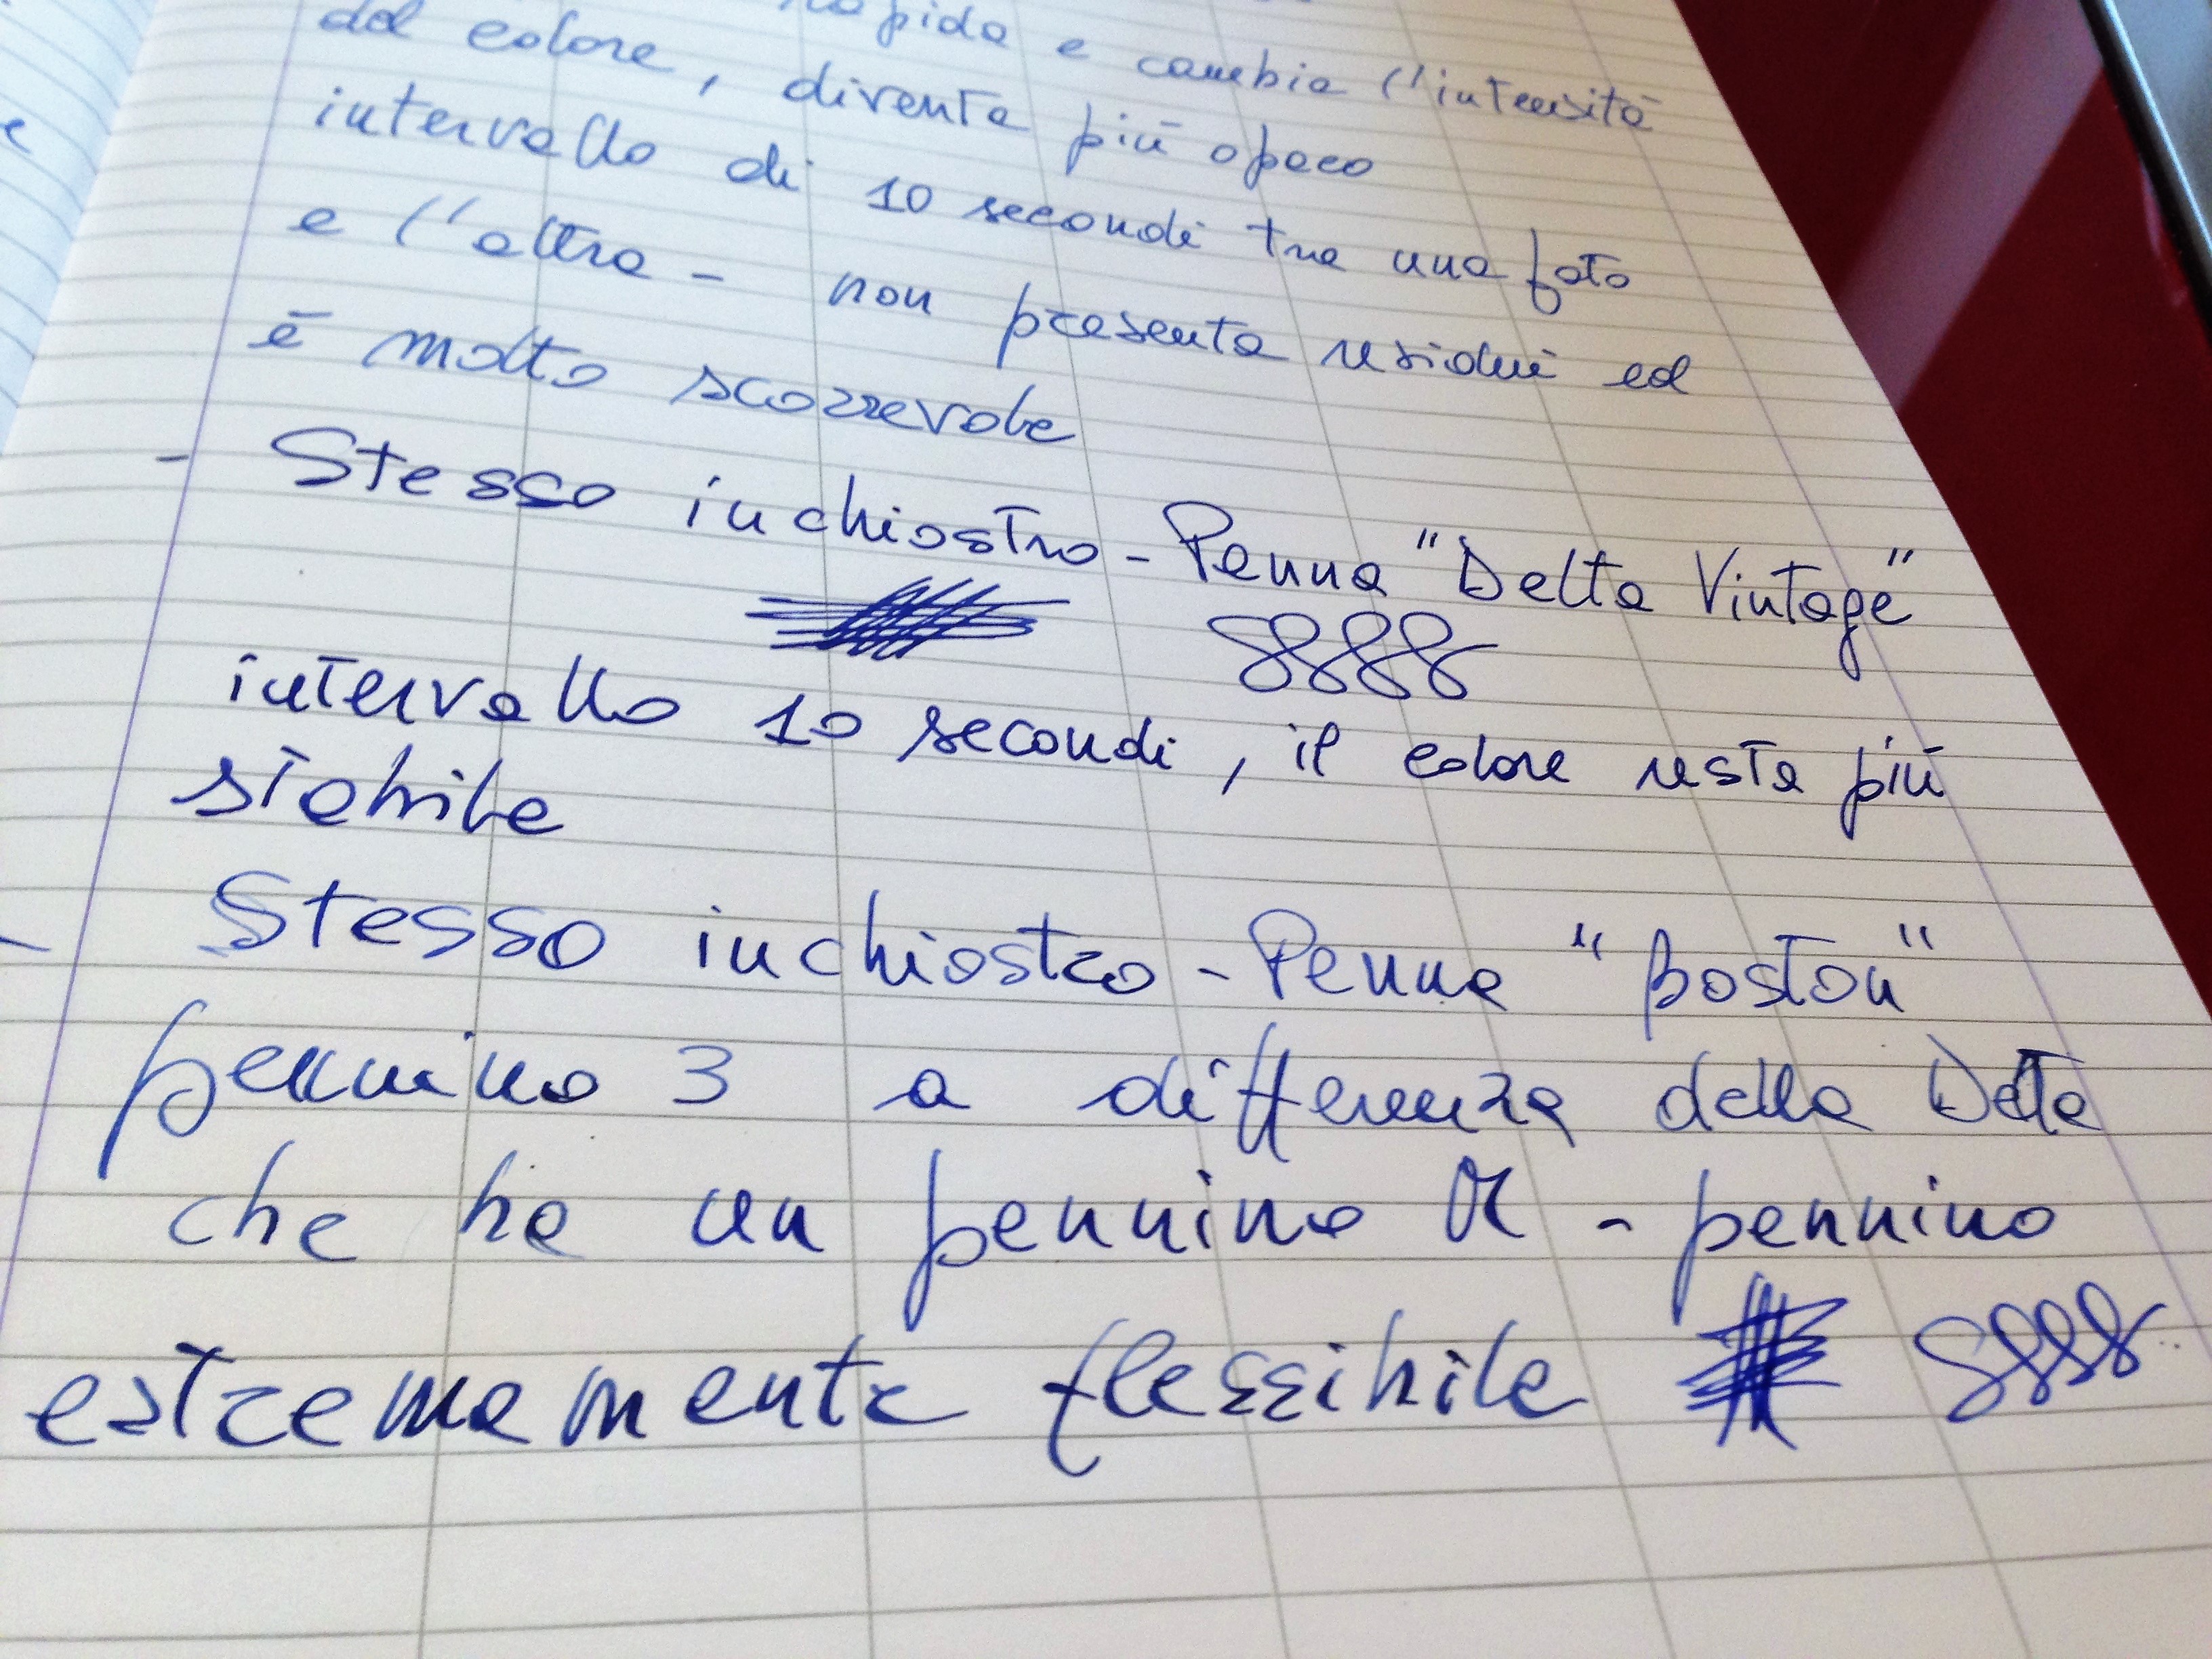 rapida e cambia l'intensità
del colore, diventa più opaco
intervallo di 10 secondi tra una foto
e l'altra - non presenta residui ed
è molto scorrevole
- Stesso inchiostro - Penna "Delta Vintage"
intervallo 10 secondi, il colore resta più
stabile
- Stesso inchiostro - Penna "Boston"
pennino 3 a differenza della Delta
che ha un pennino M - pennino
estremamente flessibile